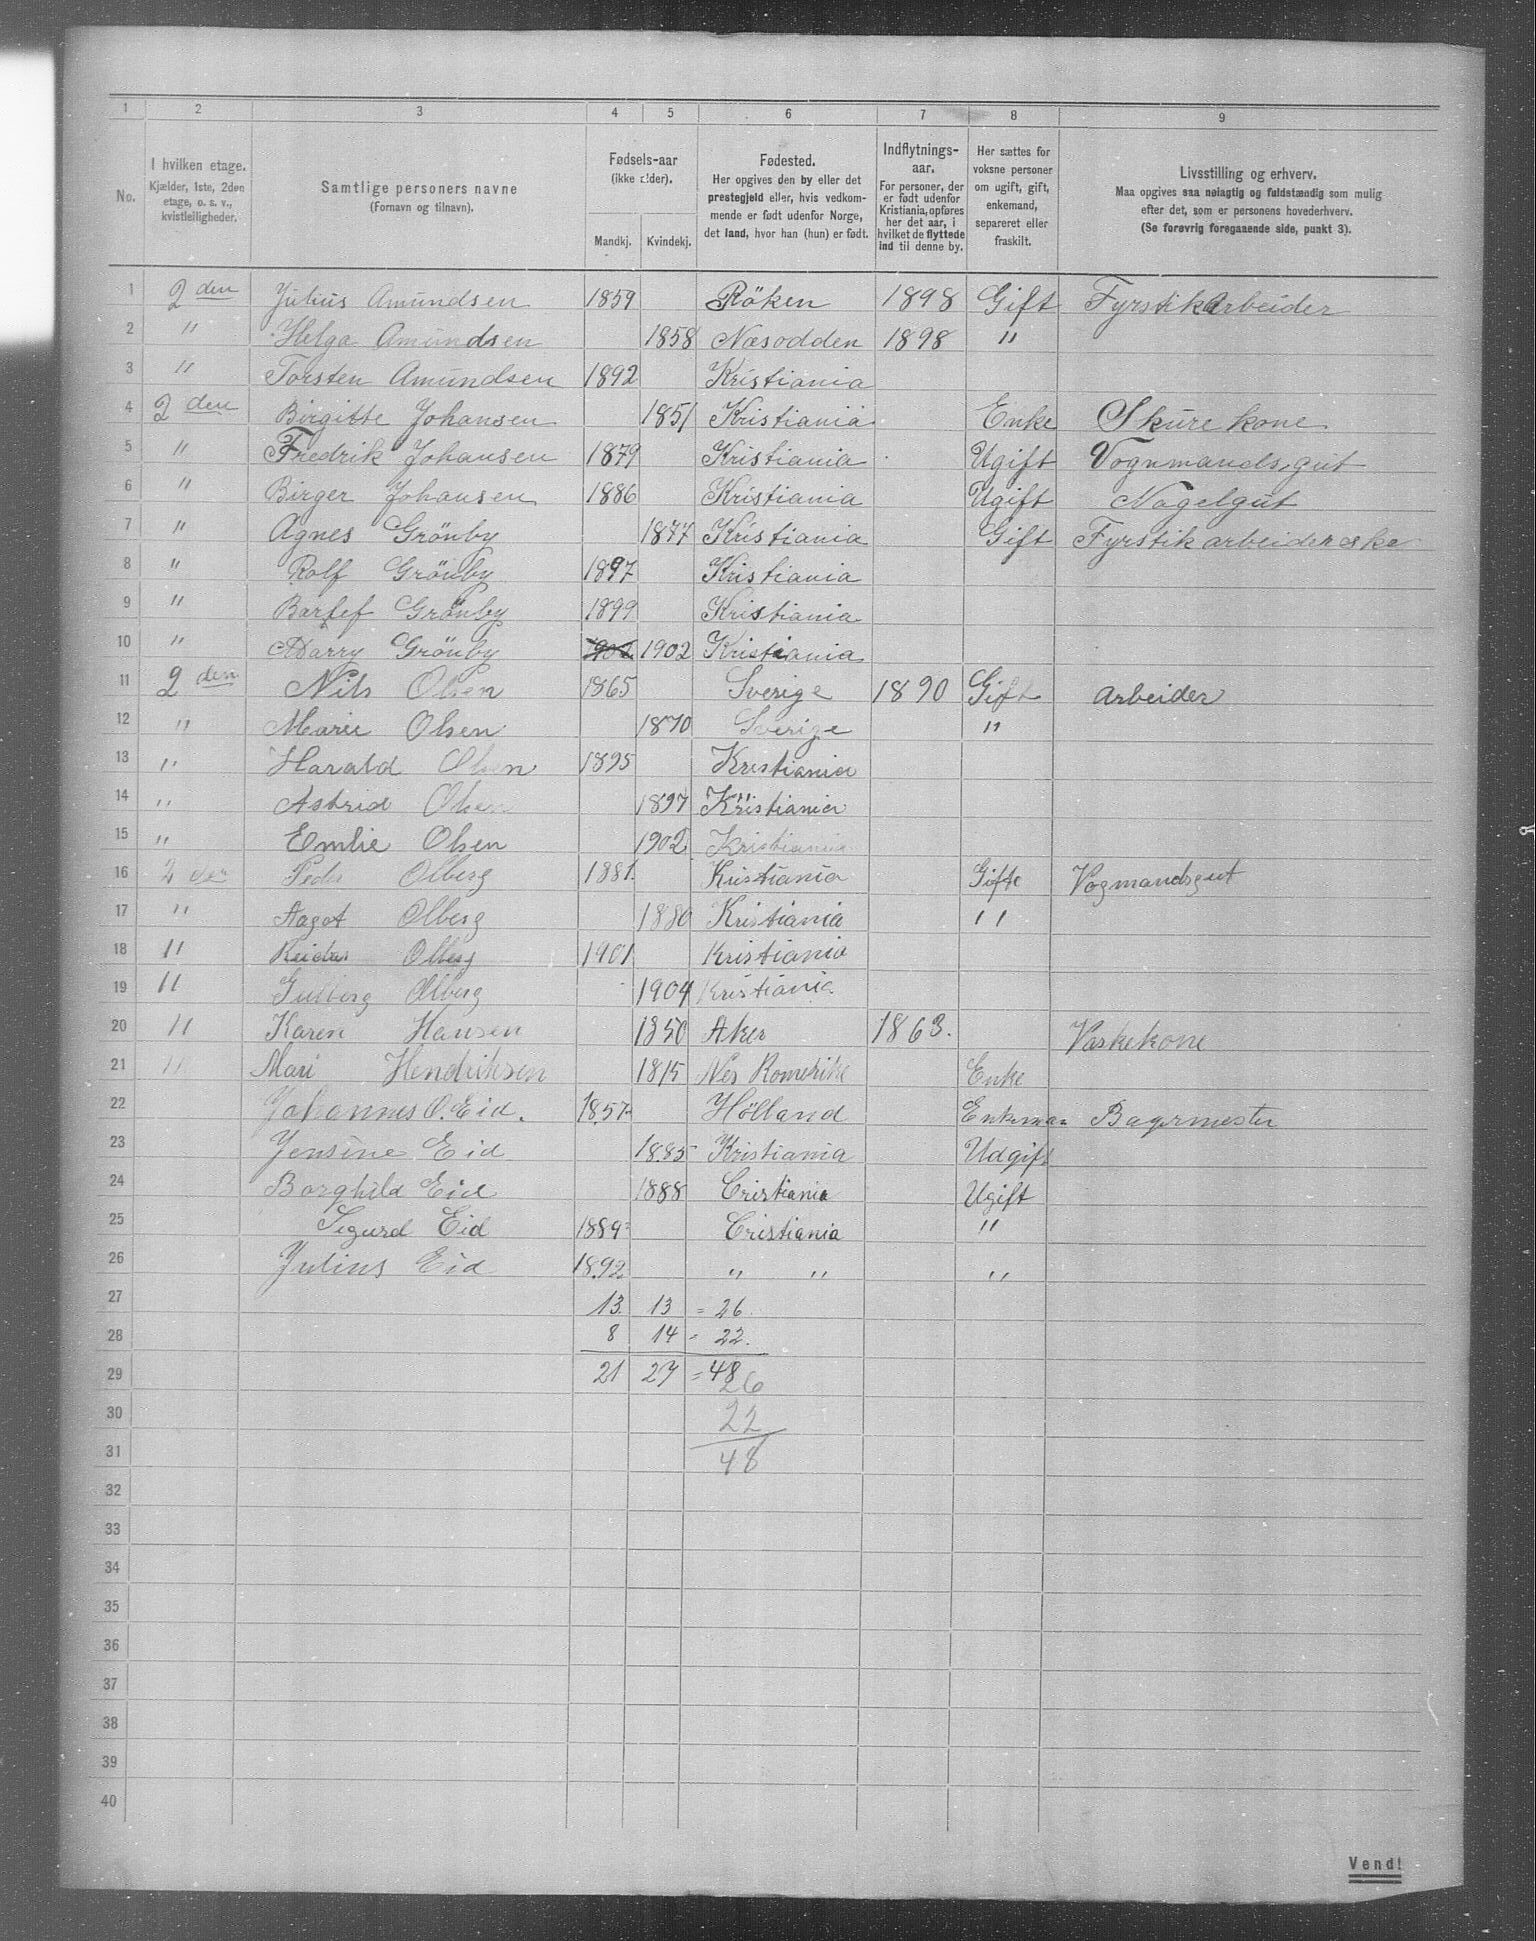 1 2 3 4 5 6 7 8 9
No.
I hvilken etage.
Kjælder, 1ste, 2den
etage, o. s. v.,
kvistleiligheder.
Samtlige personers navne
(Fornavn og tilnavn).
Fødsels-aar
(ikke alder).
Mandkj. Kvindekj.
Fødested.
Her opgives den by eller det
prestegjeld eller, hvis vedkom-
mende er født udenfor Norge,
det land, hvor han (hun) er født.
Indflytnings-
aar.
For personer, der
er født udenfor
Kristiania, opføres
her det aar, i
hvilket de flyttede
ind til denne by.
Her sættes for
voksne personer
om ugift, gift,
enkemand,
separeret eller
fraskilt.
Livsstilling og erhverv.
Maa opgives saa nøiagtig og fuldstændig som mulig
efter det, som er personens hovederhverv.
(Se forøvrig foregaaende side, punkt 3).
1 2den Julius Amundsen 1859 Röken 1898 Gift Fyrstikarbeider
2 " Helga Amundsen 1858 Næsodden 1898 "
3 " Torsten Amundsen 1892 Kristiania
4 2den Birgitte Johansen 1851 Kristiania Enke Skurekone
5 " Fredrik Johansen 1879 Kristiania Ugift Vognmandsgut
6 " Birger Johansen 1886 Kristiania Ugift Nagelgut
7 " Agnes Grönby 1877 Kristiania Gift Fyrstikarbeiderske
8 " Rolf Grönby 1897 Kristiania
9 " Grönby 1899 Kristiania
10 " Grönby 1902 1902 Kristiania
11 2den Nils Olsen 1865 Sverige 1890 Gift arbeider
12 " Marie Olsen 1870 Sverige "
13 " Harald Olsen 1895 Kristiania
14 " Astrid Olsen 1897 Kristiania
15 " Emlie Olsen 1902 Kristiania
16 2den Peder Olberg 1881 Kristiania Gifte Vogmandsgut
17 " Aagot Olberg 1880 Kristiania "
18 " Reidar Olberg 1901 Kristiania
19 " Gulborg Olberg 1904 Kristiania
20 " Karen Hansen 1850 Aker 1863. Vaskekone
21 " Mari Hendriksen 1815 Nes Romerike Enke
22 Johannes O. Eid. 1857 Hölland Enkeman Bagermester
23 Jensine Eid 1885 Kristiania Udgift
24 Borghild Eid 1888 Cristiania Ugift
25 Sigurd Eid 1889 Cristiania "
26 Julius Eid 1892 " " "
27 13 13 = 26.
28 8 14 = 22.
29 21 27 = 48
26
30 22
31 48
32
33
34
35
36
37
38
39
40
Vend!